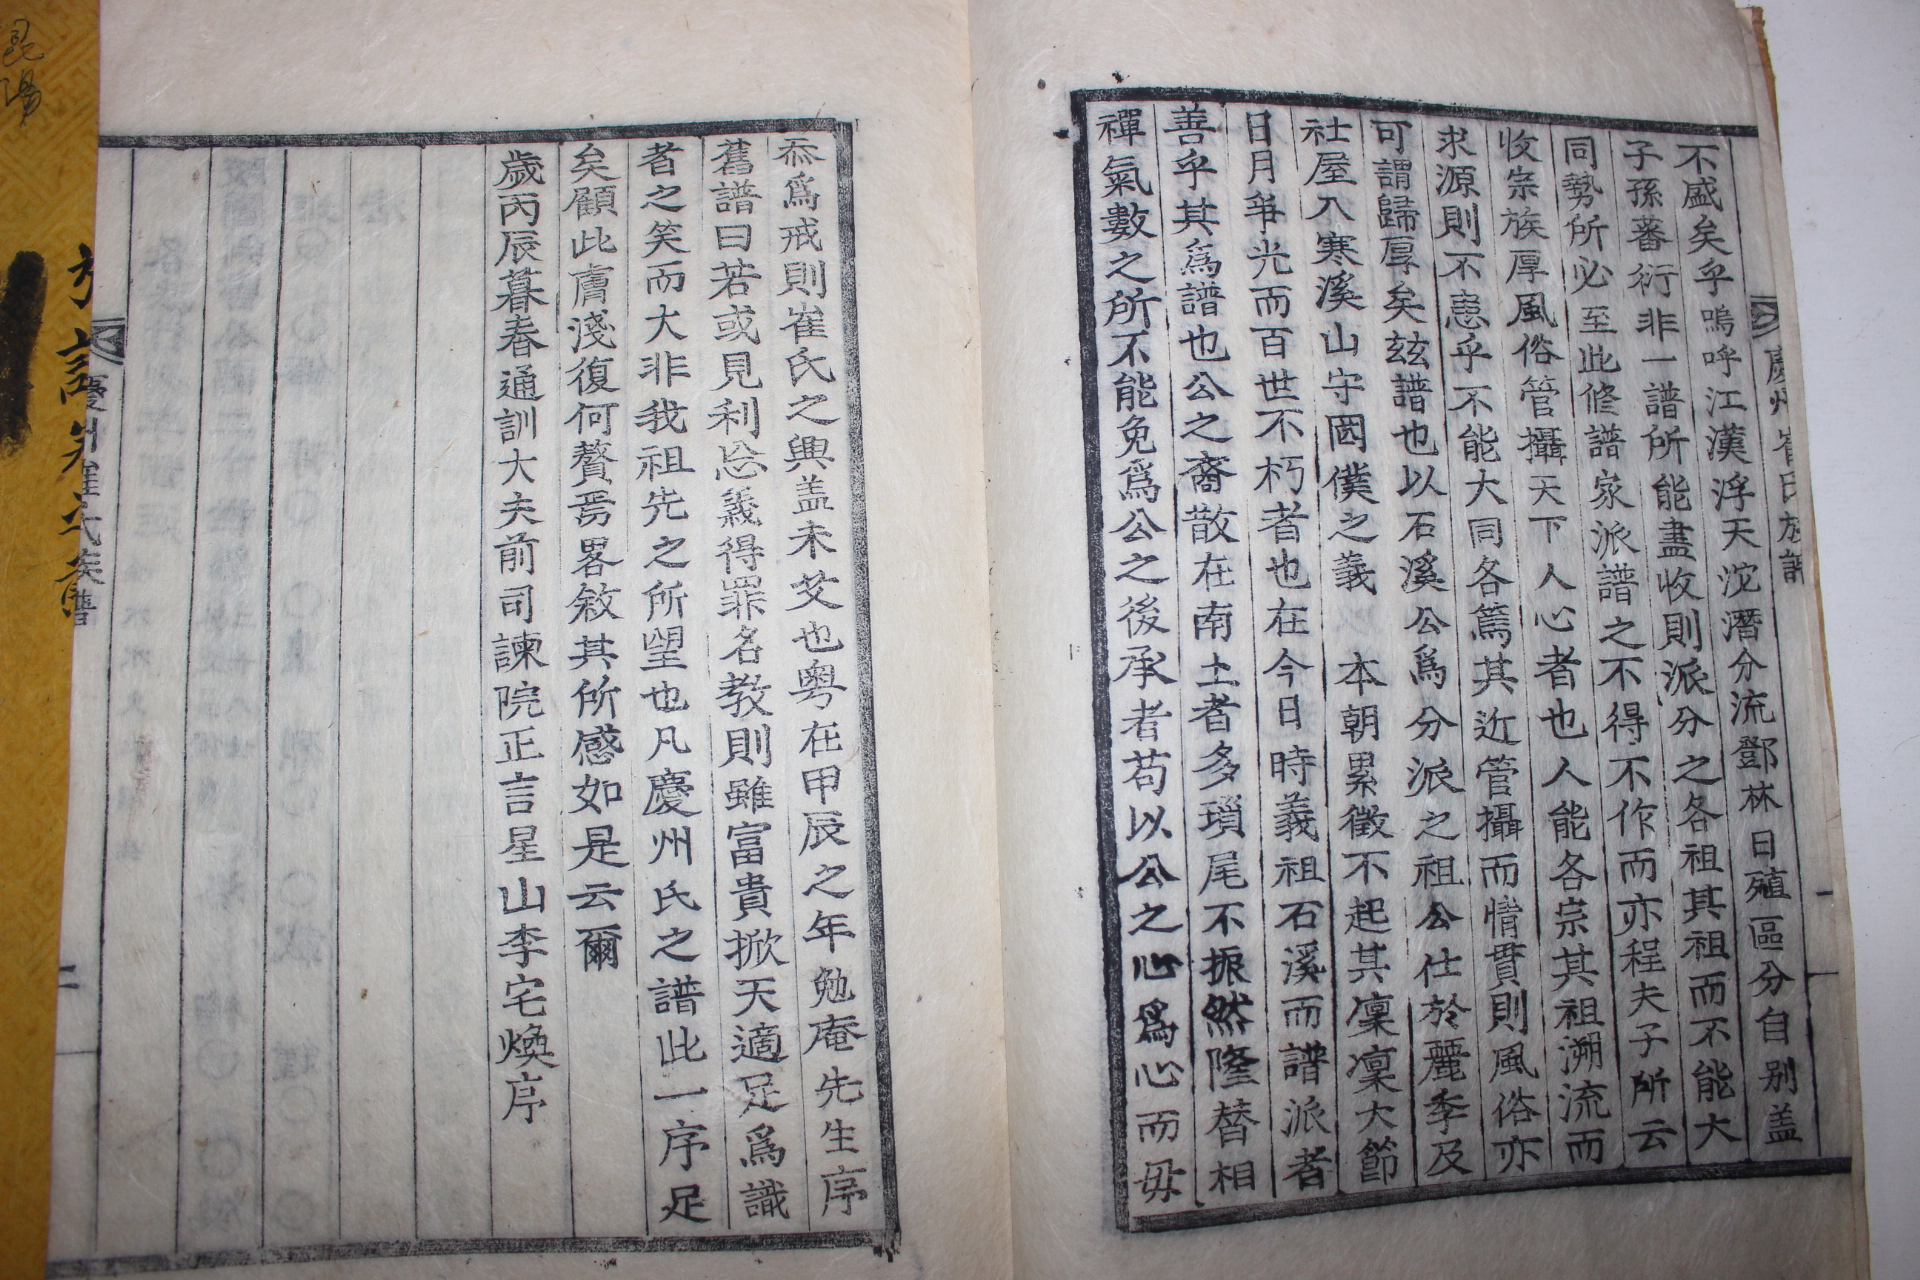 不盛矣乎嗚呼江漢浮天沱潛分流鄧林日殖區分自別盖
子孫蕃衍非一譜所能盡收則派分之各祖其祖而不能大
同勢所必至此修譜家派譜之不得不作而亦程夫子所云
收宗族厚風俗管攝天下人心者也人能各宗其祖溯流而
求源則不患乎不能大同各篤其近管攝而情貫則風俗亦
可謂歸厚矣玆譜也以石溪公爲分派之祖公仕於麗季及
社屋入寒溪山守罔僕之義 本朝累徵不起其凜凜大節
日月爭光而百世不朽者也在今日時義祖石溪而譜派者
善乎其爲譜也公之裔散在南土者多瑣尾不振然隆替相
禪氣數之所不能免爲公之後承者苟以公之心爲心而毋
忝爲戒則崔氏之興盖未艾也粤在甲辰之年勉庵先生序
舊譜曰若或見利忘義得罪名敎則雖富貴掀天適足爲識
者之笑而大非我祖先之所望也凡慶州氏之譜此一序足
矣顧此膚淺復何贅焉畧敘其所感如是云爾
歲丙辰暮春通訓大夫前司諫院正言星山李宅煥序
慶州崔氏族譜
慶州崔氏族譜
二